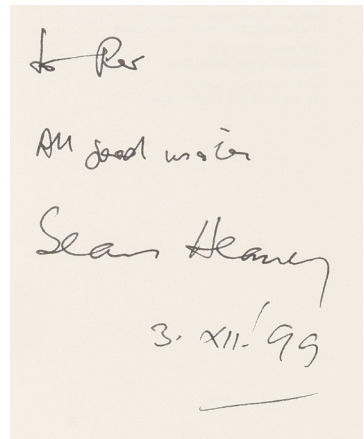 to Per
All good wishes
Seamus Heaney
3. XII. '99